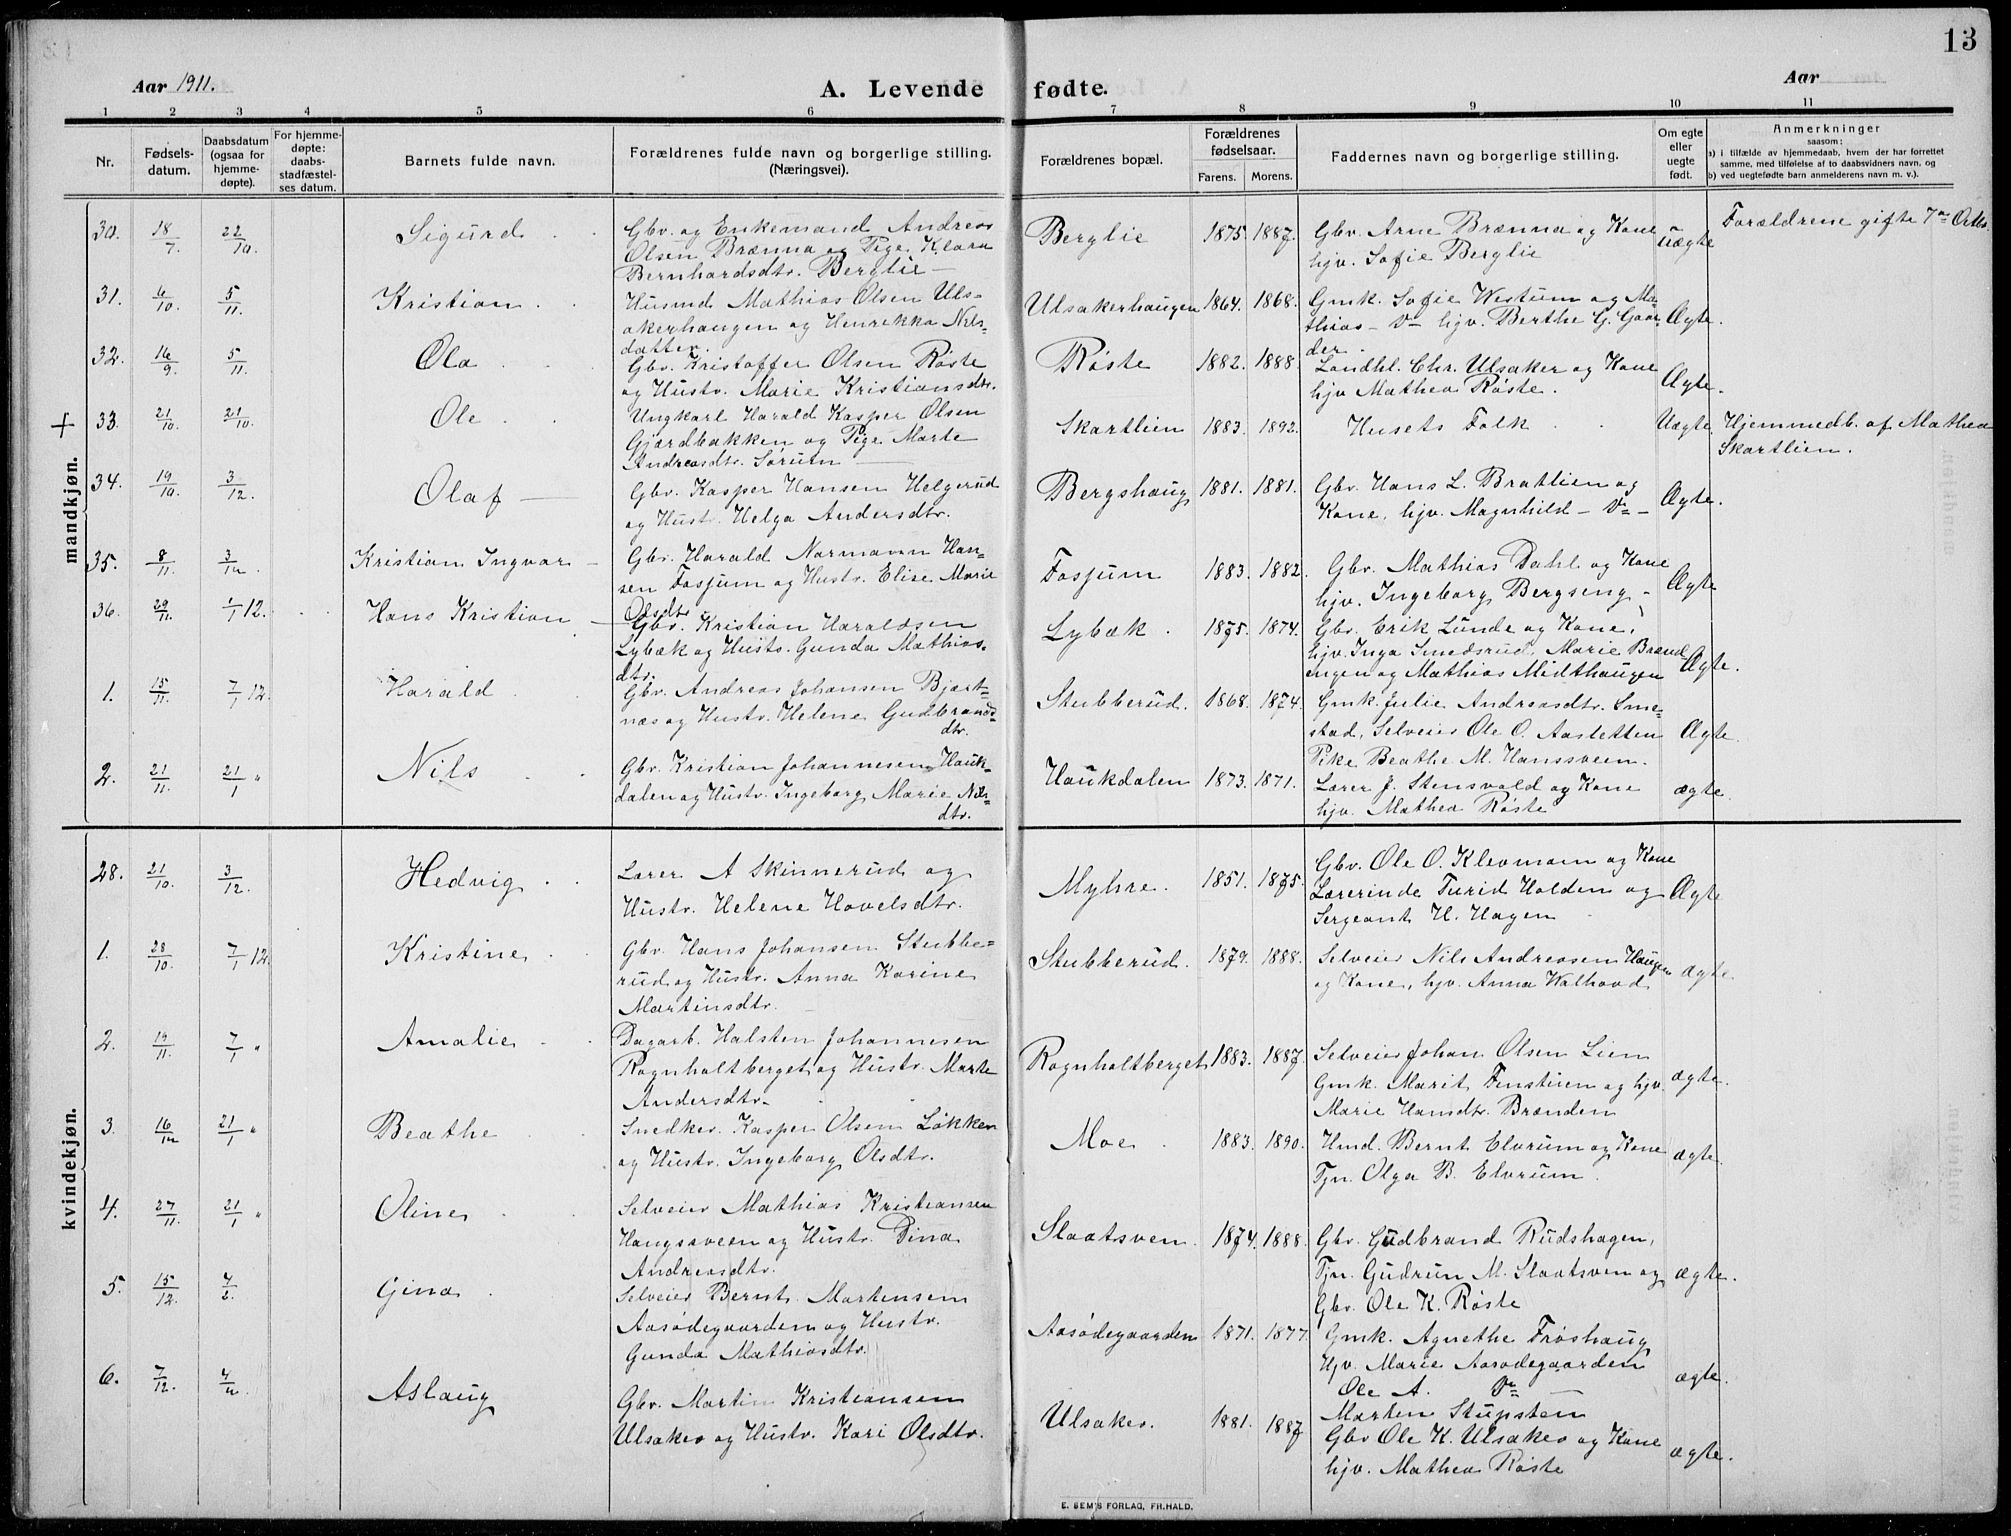 13
Aar 1911.
A. Levende fødte.
Aar
1 2 3 4 5 6 7 8 9 10 11
Nr.
Fødsels-
datum.
Daabsdatum
(ogsaa for
hjemme-
døpte).
For hjemme-
døpte:
daabs-
stadfæstel-
ses datum.
Barnets fulde navn.
Forældrenes fulde navn og borgerlige stilling.
(Næringsvei).
Forældrenes bopæl.
Forældrenes
fødselsaar.
Farens. Morens.
Faddernes navn og borgerlige stilling.
Om egte
eller
uegte
født.
Anmerkninger
saasom:
a) i tilfælde av hjemmedaab, hvem der har forrettet
samme, med tilføielse af to daabsvidners navn, og
b) ved uegtefødte barn anmelderens navn m. v.).
mandkjøn.
30. 18/7. 22/10. Sigurd Gbr. og Enkemand Andreas
Olsen Brænna og Pige Klara
Bernhardsdtr. Berglie
Berglie 1875. 1887. Gbr. Arne Brænna og Kone
hjv. Sofie Berglie
Uægte Forældrene gifte 7de Octbr.
31. 6/10. 5/11. Kristian Husmd Mathias Olsen Uls-
akerhaugen og Henrikka Nils-
datter.
Ulsakerhaugen 1864. 1868. Gmk. Sofie Westum og Ma-
thias — do — hjv. Berthe G. Gaar-
der. Ægte.
32. 16/9. 5/11. Ola Gbr. Kristoffer Olsen Røste
og Hustr. Marie Kristiansdtr.
Røste 1882. 1888. Landhl. Chr. Ulsaker og Kone
hjv Mathea Røste. Ægte.
+ 33. 21/10. 21/10. Ole Ungkarl Harald Kasper Olsen
Gjærdbakken og Pige Marte
Andreasdtr. Sørum
Skartlien 1883. 1892. Husets Folk Uægte. Hjemmedb. af Mathea
Skartlien.
34. 19/10. 3/12. Olaf Gbr. Kasper Hansen Helgerud
og Hustr. Helga Andersdtr.
Bergshaug 1881. 1881. Gbr. Hans L. Bratlien og
Kone, hjv. Magnhild — do — Ægte.
35. 8/11. 3/12. Kristian Ingvar Gbr. Harald Normann Han-
sen Fosjum og Hustr. Elise Marie
Olsdtr.
Fosjum 1883. 1882. Gbr. Mathias Dahl og Kone
hjv. Ingeborg Bergseng. Ægte
36. 29/11. 1/1 12. Hans Kristian Gbr. Kristian Haraldsen
Lybæk og Hustr. Gunda Mathias-
dtr.
Lybæk. 1875. 1874. Gbr. Erik Lunde og Kone,
hjv. Inga Smedsrud, Marie Brænd-
engen og Mathias Midthaugen Ægte.
1. 15/11. 7/1 12. Harald Gbr. Andreas Johansen Bjært-
næs og Hustr. Helene Gudbrands-
dtr.
Stubberud. 1868. 1874. Gmk. Julie Andreasdtr. Sme-
stad, Selveier Ole O. Aasletten
Pike Beathe M. Hanssveen. Ægte.
2. 21/11. 21/1 " Nils Gbr. Kristian Johannesen Hauk-
dalen og Hustr. Ingeborg Marie Nils-
dtr.
Haukdalen 1873. 1871. Lærer J. Stensvold og Kone
hjv. Mathea Røste ægte.
kvindekjøn.
28. 21/10. 3/12. Hedvig Lærer A Skinnerud og
Hustr. Helene Hovelsdtr.
Myhre. 1851. 1875. Gbr. Ole O. Klevmoen og Kone
Lærerinde Turid Holden og
Sergeant H. Hagen Ægte
1. 28/10. 7/1 12. Kristine Gbr. Hans Johansen Stubbe-
rud og Hustr. Anna Karine
Martinsdtr.
Stubberud. 1879. 1888. Selveier Nils Andreasen Haugen
og Kone, hjv. Anna Walhovd. ægte.
2. 19/11. 7/1 " Amalie Dagarb. Halsten Johannesen
Rognholtberget og Hustr. Marte
Andersdtr.
Rognholtberget 1883. 1887. Selveier Johan Olsen Lien
Gmk. Marit Finstuen og hjv.
Marie Hansdtr. Brænden ægte.
3. 16/12 21/1 " Beathe Snedker. Kasper Olsen Løkken
og Hustr. Ingeborg Olsdtr.
Moe. 1883. 1890. Hmd. Bernt Elvrum og Kone
Tjn. Olga B. Elvrum. ægte.
4. 27/11. 21/1 " Oline Selveier Mathias Kristiansen
Haugssveen og Hustr. Dina
Andreasdtr.
Slaatsven. 1874. 1888. Gbr. Gudbrand Rudshagen,
Tjn. Gudrun M. Slaatsven og
Gbr. Ole K. Røste ægte.
5. 15/12. 4/2. Gina Selveier Bernt Martensen
Aasødegaarden og Hustr.
Gunda Mathiasdtr.
Aasødegaarden 1871. 1877. Gmk. Agnethe Frøshaug
Hjv. Marie Aasødegaarden
Ole A. do
Marten Stupsten ægte.
6. 7/12. 4/2. Aslaug Gbr. Martin Kristiansen
Ulsaker og Hustr. Kari Olsdtr.
Ulsaker. 1881. 1887 Gbr Ole K. Ulsaker og Kone
hjv. Mathea Røste ægte.
E. SEM'S FORLAG, FR.HALD.